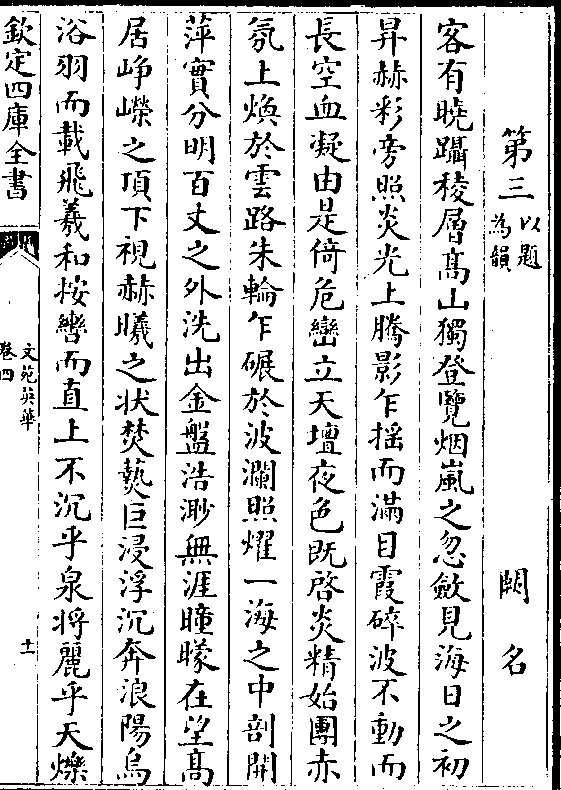 第三以題為韻 闕名
客有曉躡稜層髙山獨登覽烟嵐之忽斂見海日之初
昇赫彩旁照炎光上騰影乍揺而滿目霞碎波不動而
長空血凝由是倚危巒立天壇夜色既啓炎精始團赤
氛上煥於雲路朱輪乍碾於波瀾照燿一海之中剖開
萍實分明百丈之外洗出金盤浩渺無涯曈曚在望髙
居崢嶸之頂下視赫曦之狀焚爇巨浸浮沉奔浪陽烏
浴羽而載飛羲和按轡而直上不沉乎泉将麗乎天爍
欽定四庫全書
文苑英華
卷四
十一